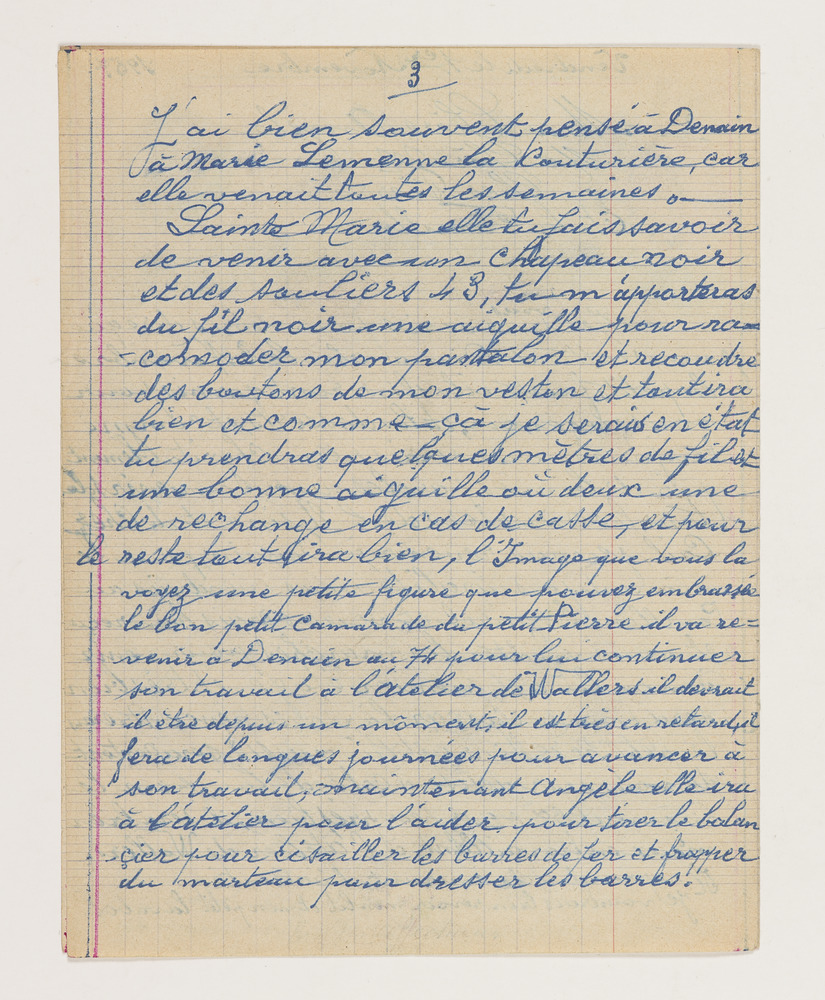 3
J'ai bien souvent pensé à Denain
à Marie Lemenne la Couturière, car
elle venait toutes les semaines.
Sainte Marie elle tu fais savoir
de venir avec un chapeau noir
et des souliers 43, tu m'apporteras
du fil noir une aiguille pour ra=
=comoder mon pantalon et recoudre
des boutons de mon veston et tout ira
bien et comme ça je serais en état
tu prendras quelques mètres de fil et
une bonne aiguille où deux une
de rechange en cas de casse, et pour
le reste tout ira bien, l'Image que vous la
voyez une petite figure que pouvez embrassée
le bon petit Camarade du petit Pierre il va re=
venir à Denain au 74 pour lui continuer
son travail à l'atelier de Wallers il devrait
il être depuis un môment, il est très en retard, il
fera de longues journées pour avancer à
son travail, maintenant Angèle elle ira
à l'atelier pour l'aider pour tirer le balan
çier pour cisailler les barres de fer et frapper
du marteau pour dresser les barres.